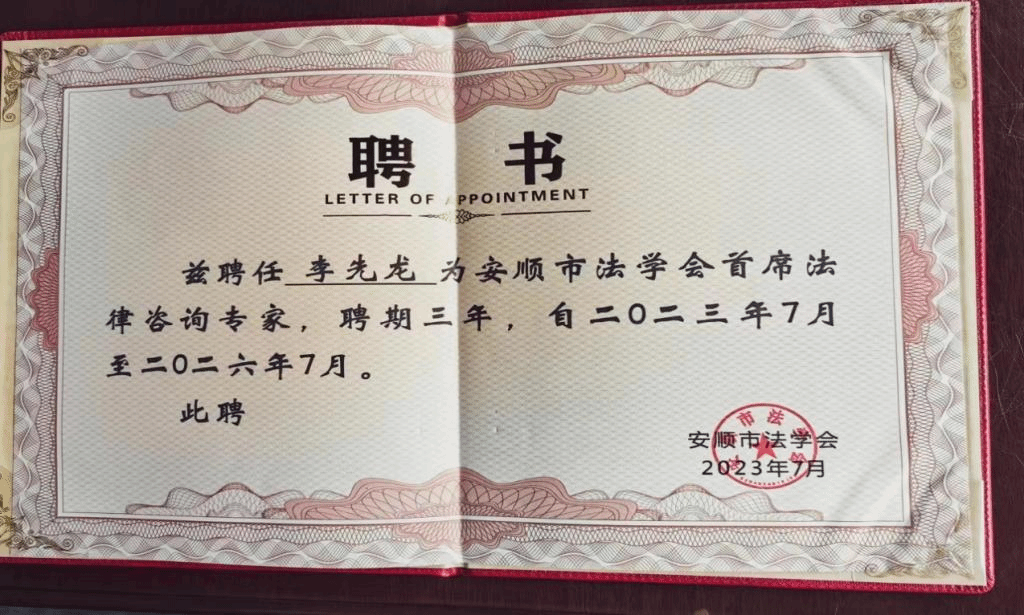 聘 书
LETTER OF APPOINTMENT
兹聘任 李先龙 为安顺市法学会首席法
律咨询专家，聘期三年，自二0二三年7月
至二0二六年7月。
此聘
安顺市法学会
2023年7月